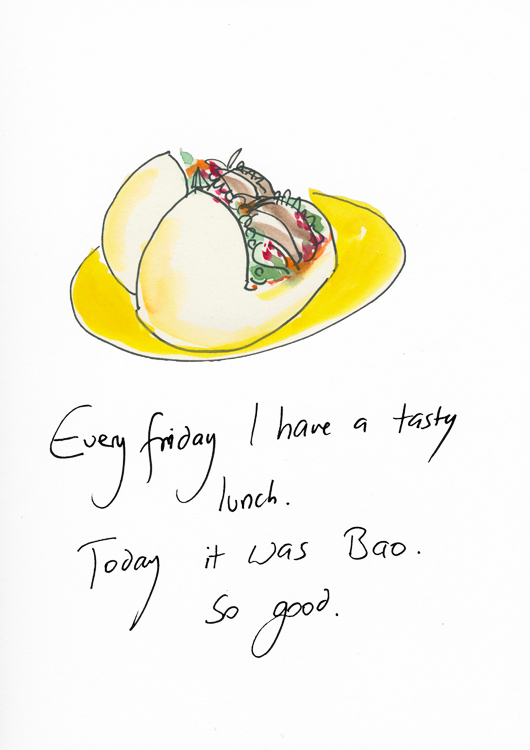 Every friday I have a tasty
lunch.
Today it was Bao.
So good.